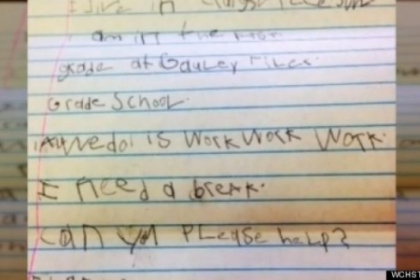 I live in
am in the
grade at Gauley
Grade School.
All We do is Work Work Work.
I need a break.
Can you Please help?
WCHS